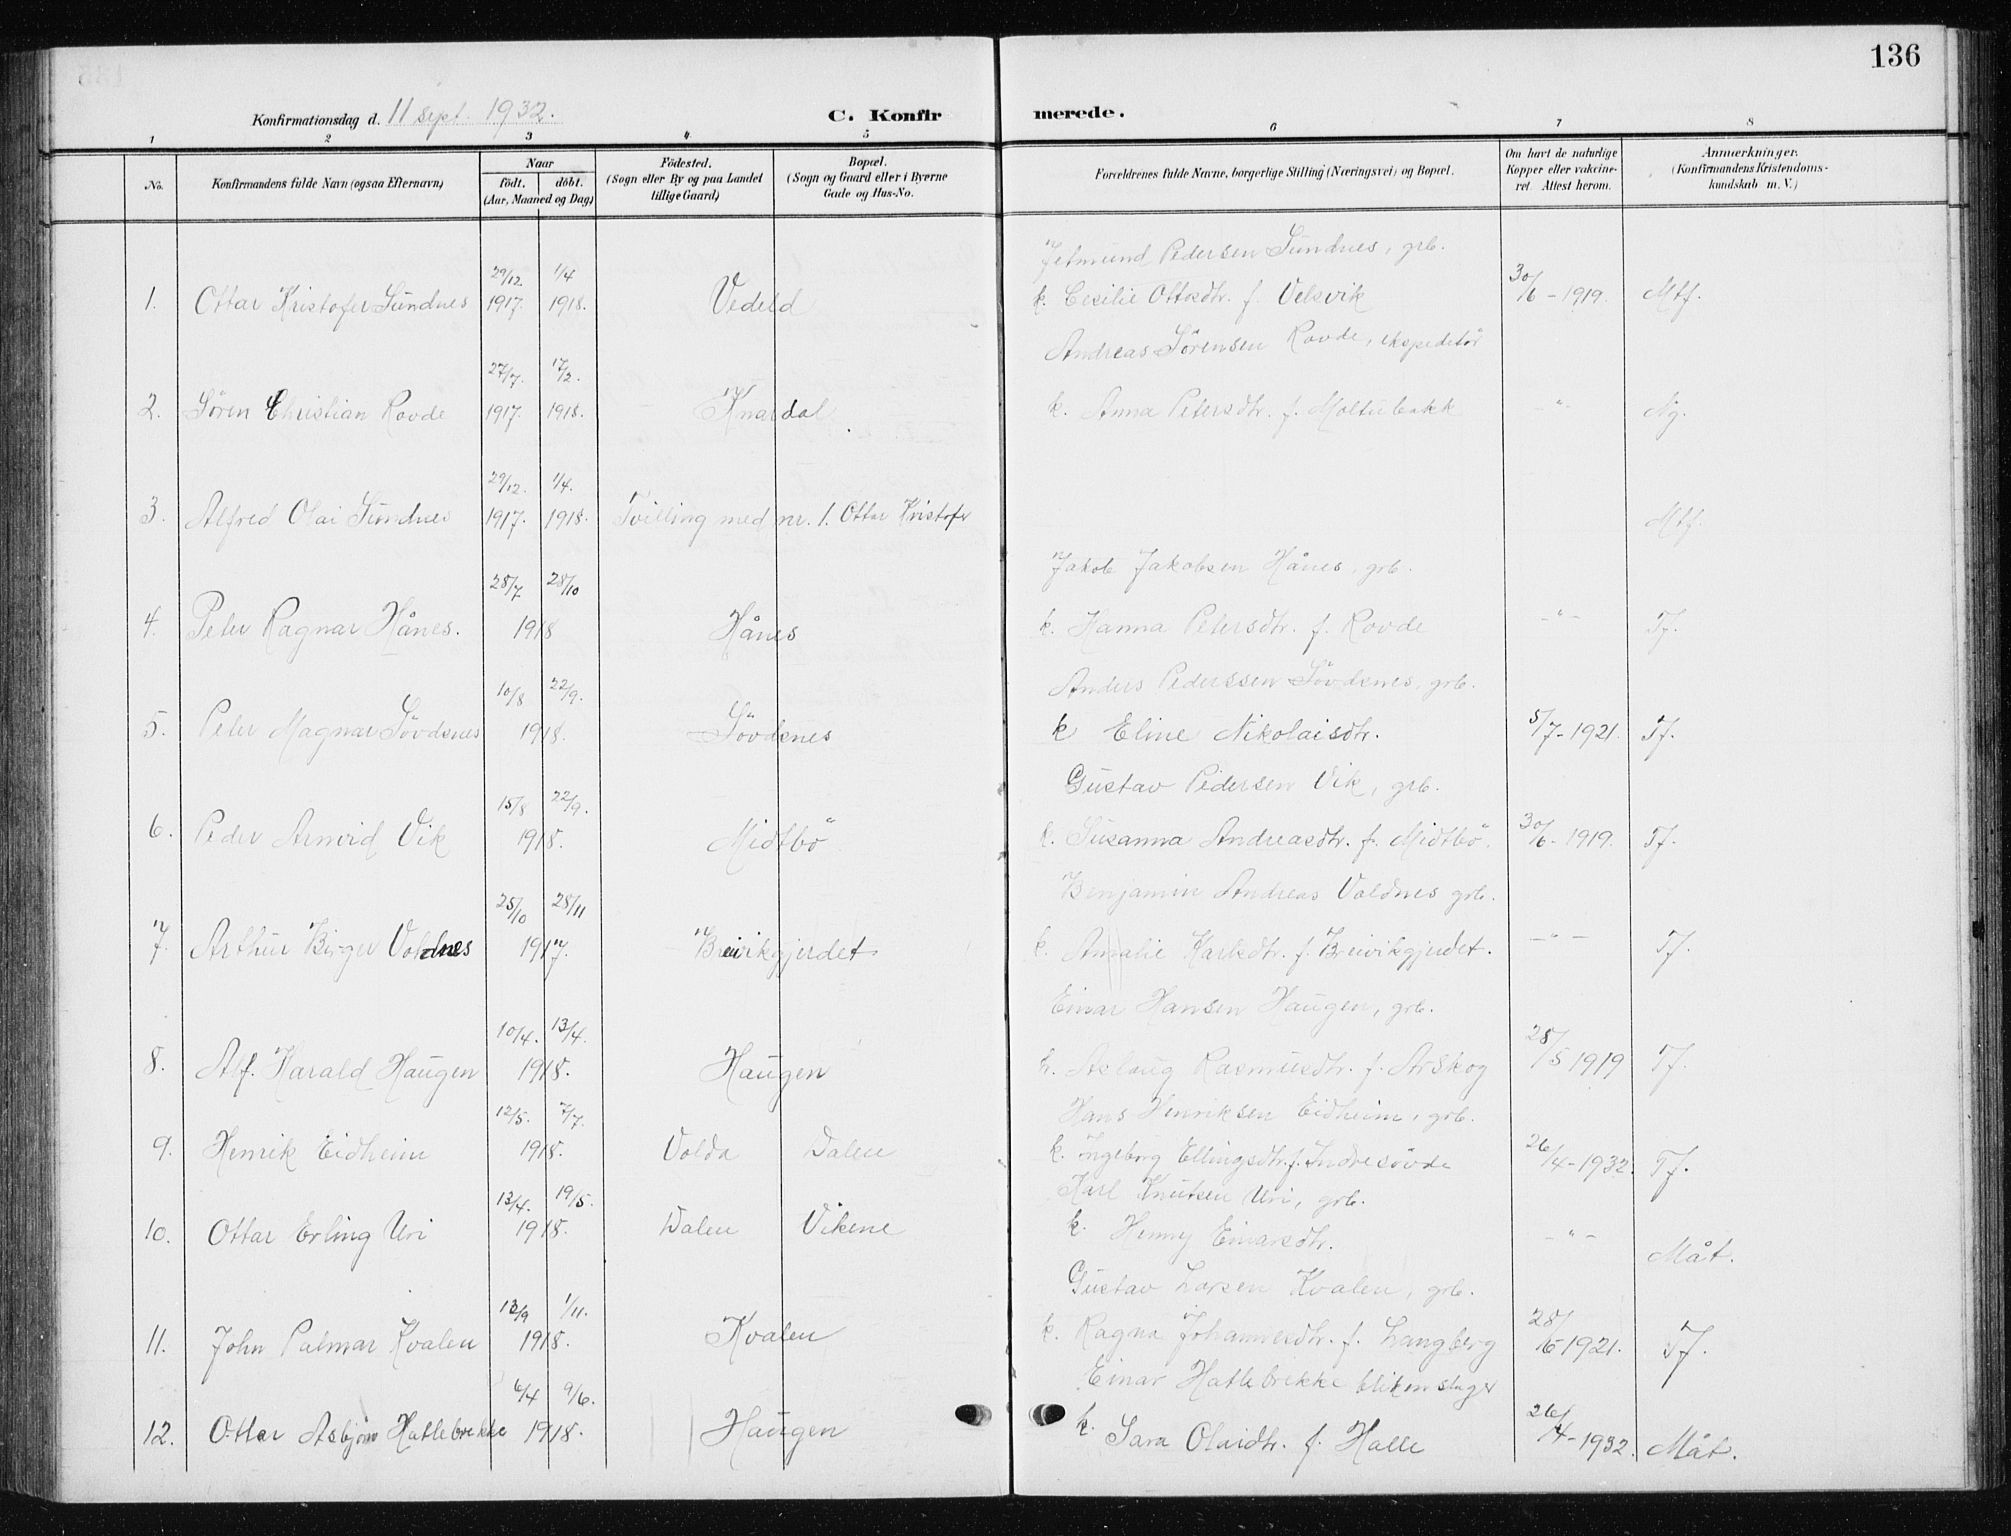 136
Konfirmationsdag d. 11 sept. 1932.
C. Konfirmerede.
1 2 3 4 5 6 7 8
No.
Konfirmandens fulde Navn (ogsaa Efternavn)
Naar
födt. döbt.
(Aar, Maaned og Dag)
Födested.
(Sogn eller By og paa Landet
tillige Gaard)
Bopæl.
(Sogn og Gaard eller i Byerne
Gade og Hus-No.
Forældrenes fulde Navne, borgerlige Stilling (Næringsvei) og Bopæl.
Om havt de naturlige
Kopper eller vakcine-
ret Attest herom.
Anmærkninger.
(Konfirmandens Kristendoms-
kundskab m. V.)
Jetmund Pedersen Sundnes, grb.
29/12 1/4
1. Ottar Kristofer Sundnes 1917. 1918. Vedeld k. Cecilie Ottosdtr. f. Velsvik 30/6 - 1919. Mtf.
Andreas Sørensen Rovde, ekspeditör
27/7. 17/2.
2. Sören Christian Rovde 1917. 1918. Knardal k. Anna Petersdtr. f. Moltubakk - " - Ng.
29/12. 1/4.
3. Alfred Olai Sundnes 1917. 1918. Tvilling med nr. 1. Ottar Kristofer Mtf.
Jakob Jakobsen Hånes, grb.
28/7 28/10
4. Peter Ragnar Hånes. 1918 Hånes k. Hanna Petersdtr. f. Rovde - " - Tf.
Anders Pederssen Sövdsnes, grb.
10/8 22/9.
5. Peter Magnar Sövdsnes 1918. Sövdsnes k Eline Nikolaisdtr. 5/7 - 1921. Tf.
Gustav Pedersen Vik, grb.
15/8 22/9.
6. Peder Arnvid Vik 1918. Midtbö k. Susanna Andreasdtr. f. Midtbö. 30/6 - 1919. Tf.
Benjamin Andreas Voldnes grb.
25/10 28/11
7. Arthur Birger Voldnes 1917. Breivikgjerdet k. Amalie Karlsdtr. f. Breivikgjerdet. - " - Tf.
Einar Hansen Haugen, grb.
10/4. 13/4.
8. Alf. Harald Haugen 1918. Haugen k. Aslaug Rasmusdtr. f. Årskog 28/5 1919 Tf.
Hans Henriksen Eidheim, grb.
12/5. 7/7.
9. Henrik Eidheim 1918. Volda Dalen k. Ingeborg Ellingsdtr. f. Indresövde 26/4 - 1932. Tf.
Karl Knutsen Uri, grb.
13/4. 19/5.
10. Ottar Erling Uri 1918. Dalen Vikene k. Henny Einarsdtr. - " - Måt.
Gustav Larsen Kvalen, grb.
13/9 1/11.
11. John Palmar Kvalen 1918. Kvalen k. Ragna Johannesdtr. f. Langberg 28/6 1921. Tf.
Einar Hatlebrekke blikenslager
6/4 9/6.
12. Ottar Asbjörn Hatlebrekke 1918. Haugen k. Sara Olaidtr. f. Halle 26/4 - 1932. Måt.